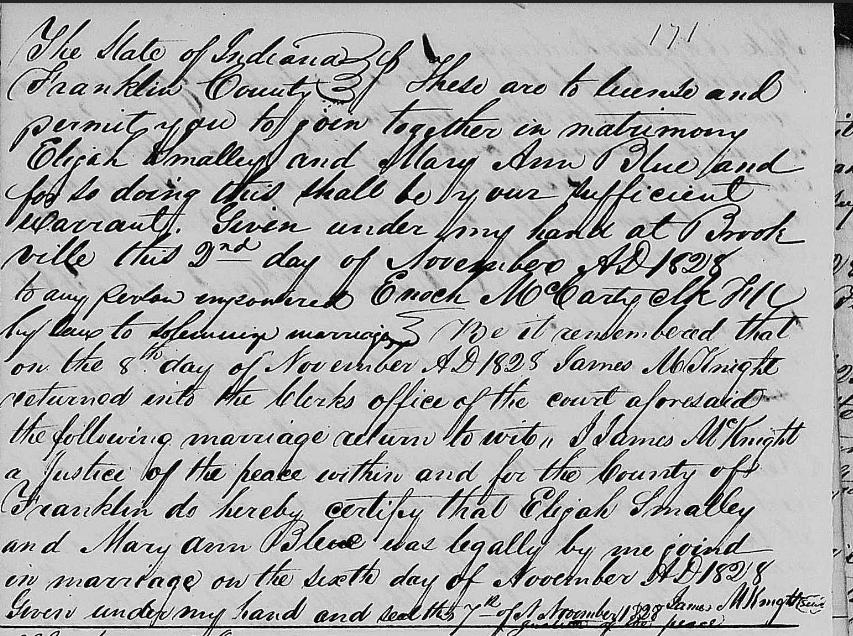 171
The State of Indiana
Franklin County } These are to license and
permit you to join together in matrimony
Elijah Smalley and Mary Ann Blue and
for so doing this shall be your sufficient
warrant. Given under my hand at Brook
ville this 2nd day of November AD 1828
to any person empowered Enoch McCarty clk
by law to solemnize marriage } Be it remembered that
on the 8th day of November AD 1828 James McKnight
returned into the Clerks office of the court aforesaid
the following marriage return to wit,, I James McKnight
a Justice of the peace within and for the County of
Franklin do hereby certify that Elijah Smalley
and Mary Ann Blue was legally by me joind
in marriage on the sixth day of November AD 1828
Given under my hand and seal this 7th of November 1828 James McKnight
Justice of the peace